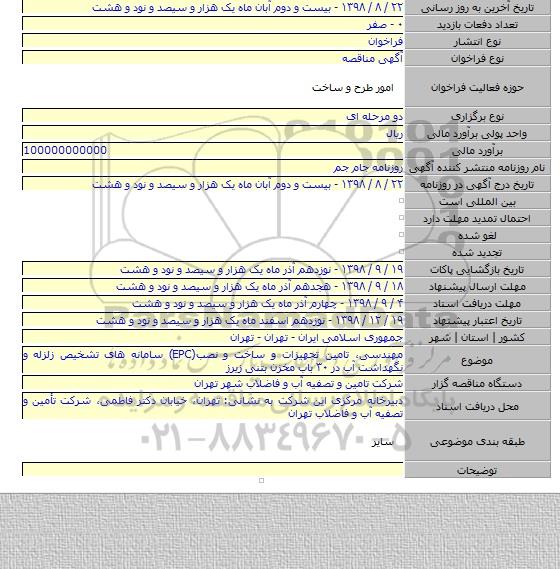 تاریخ آخرین به روز رسانی ۲۲ / ۸ / ۱۳۹۸ - بیست و دوم آبان ماه یک هزار و سیصد و نود و هشت
تعداد دفعات بازدید ۰ - صفر
نوع انتشار فراخوان
نوع فراخوان آگهی مناقصه
حوزه فعالیت فراخوان امور طرح و ساخت
نوع برگزاری دو مرحله ای
واحد پولی برآورد مالی ریال
برآورد مالی 100000000000
نام روزنامه منتشر کننده آگهی روزنامه جام جم
تاریخ درج آگهی در روزنامه ۲۲ / ۸ / ۱۳۹۸ - بیست و دوم آبان ماه یک هزار و سیصد و نود و هشت
بین المللی است
احتمال تمدید مهلت دارد
لغو شده
تجدید شده
تاریخ بازگشایی پاکات ۱۹ / ۹ / ۱۳۹۸ - نوزدهم آذر ماه یک هزار و سیصد و نود و هشت
مهلت ارسال پیشنهاد ۱۸ / ۹ / ۱۳۹۸ - هجدهم آذر ماه یک هزار و سیصد و نود و هشت
مهلت دریافت اسناد ۴ / ۹ / ۱۳۹۸ - چهارم آذر ماه یک هزار و سیصد و نود و هشت
تاریخ اعتبار پیشنهاد ۱۹ / ۱۲ / ۱۳۹۸ - نوزدهم اسفند ماه یک هزار و سیصد و نود و هشت
کشور | استان | شهر جمهوری اسلامی ایران - تهران - تهران
موضوع مهندسی، تامین تجهیزات و ساخت و نصب(EPC) سامانه های تشخیص زلزله و
نگهداشت آب در ۳۰ باب مخزن بتنی زیرز
دستگاه مناقصه گزار شرکت تامین و تصفیه آب و فاضلاب شهر تهران
محل دریافت اسناد دبیرخانه مرکزی این شرکت به نشانی: تهران، خیابان دکتر فاطمی، شرکت تأمین و
تصفیه آب و فاضلاب تهران
۰۲۱-۸۸۳۴۹۶۷۰-۵
طبقه بندی موضوعی سایر
توضیحات